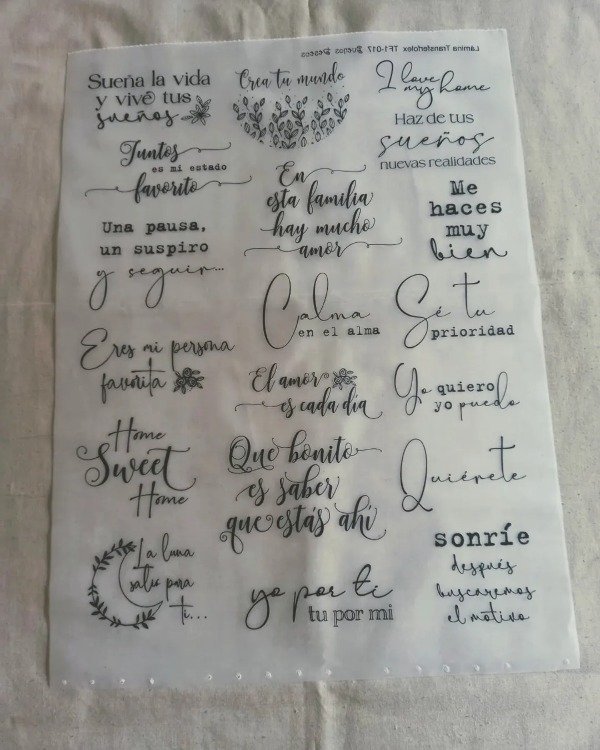 Lámina Transferiolex TF1-017 Buenos Deseos
Sueña la vida
y vive tus
sueños
Crea tu mundo
I love
my home
Juntos
es mi estado
favorito
Haz de tus
sueños
nuevas realidades
En
esta familia
hay mucho
amor
Me
haces
muy
bien
Una pausa,
un suspiro
y seguir...
Calma
en el alma
Sé tu
prioridad
Eres mi persona
favorita
El amor
es cada día
Yo quiero
yo puedo
Home
Sweet
Home
Que bonito
es saber
que estás ahí
Quiérete
La luna
salio para
ti...
yo por ti
tu por mi
sonríe
después
buscaremos
el motivo